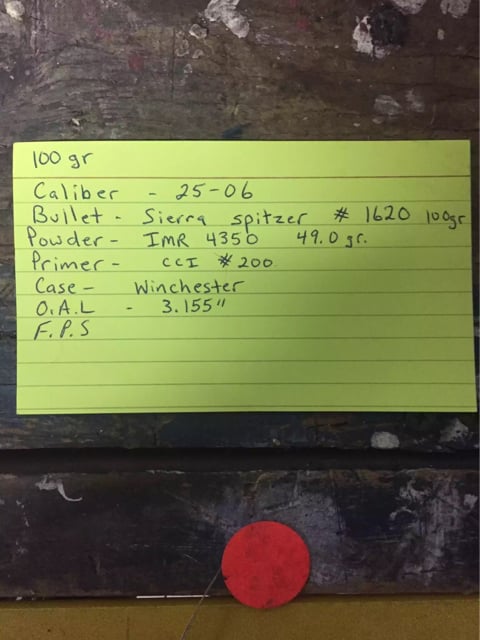 100 gr
Caliber - 25-06
Bullet - Sierra spitzer # 1620 100gr
Powder - IMR 4350 49.0 gr.
Primer - CCI #200
Case - Winchester
O.A.L - 3.155"
F.P.S